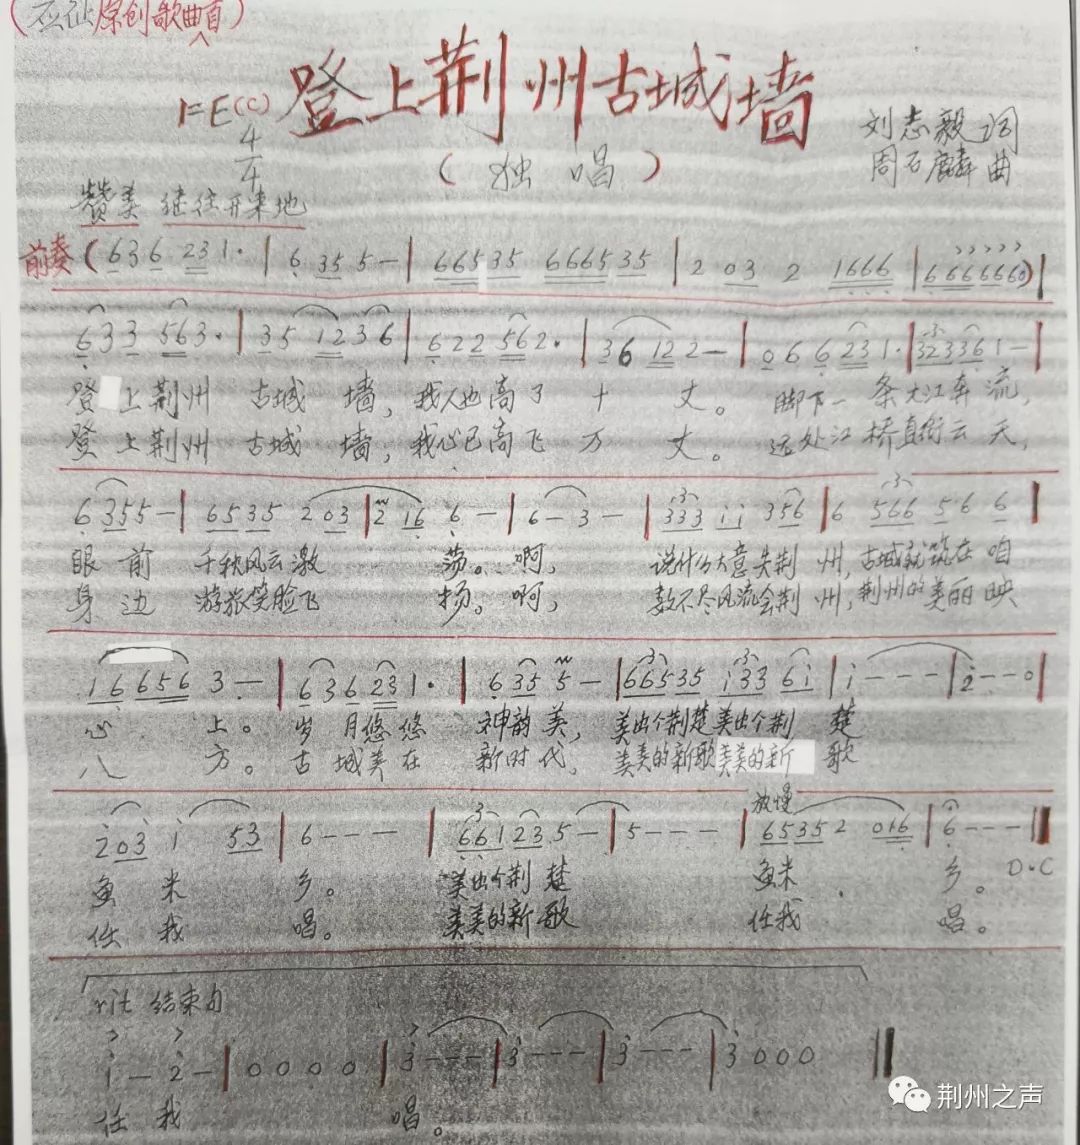 (应征原创歌曲首)
1=E(C) 登上荆州古城墙
4/4
刘志毅 词
(独 唱)
周石麟 曲
赞美 继往开来地
前奏 ( 6 3 6 2 3 1 · | 6 3 5 5 — | 6 6 5 3 5 6 6 6 5 3 5 | 2 0 3 2 1 6 6 6 | 6 6 6 6 6 6 0 ) |
6 3 3 5 6 3 · | 3 5 1 2 3 6 | 6 2 2 5 6 2 · | 3 6 1 2 2 — | 0 6 6 2 3 1 · | 3 2 3 3 6 1 — |
登 上荆州 古城 墙, 我人也高了 十 丈。 脚下一条大江奔流,
登 上荆州 古城 墙, 我心已高飞 万 丈。 远处江桥直衔云天,
6 3 5 5 — | 6 5 3 5 2 0 3 | 2 1 6 6 — | 6 — 3 — | 3 3 3 i i 3 5 6 | 6 5 6 6 5 6 6 |
眼 前 千秋风云激 荡。 啊, 说什么大意失荆 州, 古城就筑在咱
身 边 游旅笑脸飞 扬。 啊, 数不尽风流会荆 州, 荆州的美丽映
1 6 6 5 6 3 — | 6 3 6 2 3 1 · | 6 3 5 5 — | 6 6 5 3 5 i 3 3 6 i | i — — — | 2 — — 0 |
心 上。 岁 月悠悠 神韵美, 美出个荆楚美出个荆 楚
八 方。 古 城美在 新时代, 美美的新歌美美的新 歌
2 0 3 i 5 3 | 6 — — — | 6 6 1 2 3 5 — | 5 — — — | 放慢 6 5 3 5 2 0 1 6 | 6 — — — ‖
鱼 米 乡。 美出个荆 楚 鱼米 . 乡。 D·C
任 我 唱。 美美的新 歌 任我 唱。
rit 结束句
i — 2 — | 0 0 0 0 | 3 — — — | 3 — — — | 3 — — — | 3 0 0 0 ‖
任 我 唱。
荆州之声